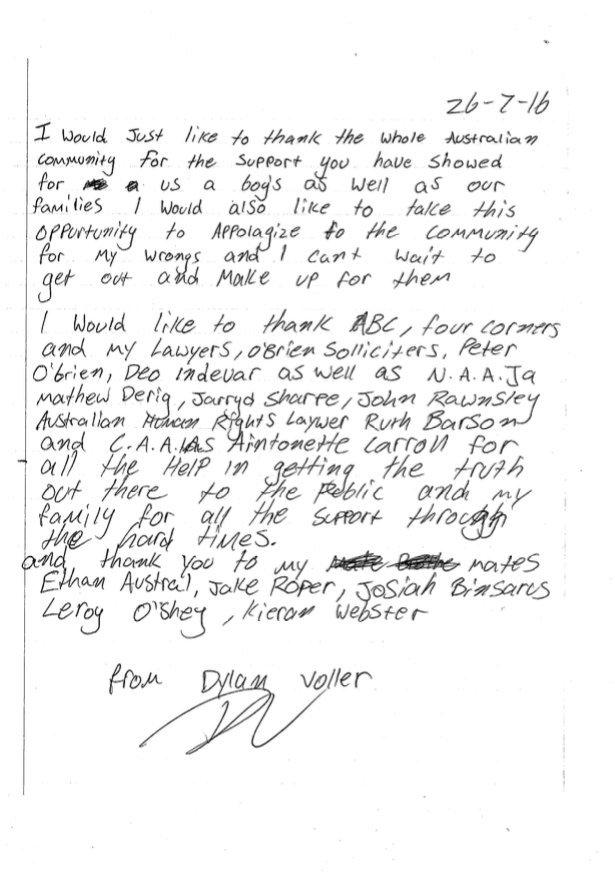 26-7-16
I would Just like to thank the whole Australian
community for the support you have showed
for us a boys as well as our
families I would also like to take this
opportunity to Appolagize to the community
for my wrongs and I cant wait to
get out and make up for them
I would like to thank ABC, four corners
and my Lawyers, O'Brien Solliciters, Peter
O'brien, Deo indevar as well as N.A.A.Ja
Mathew Derig, Jarryd Sharpe, John Rawnsley
Australian Human Rights Laywer Ruth Barson
and C.A.A.LAS Aintonette Carroll for
all the Help in getting the truth
out there to the Public and my
family for all the support through
the hard times.
and thank you to my mates
Ethan Austral, Jake Roper, Josiah Binsarus
Leroy O'Shey, Kieran Webster
from Dylan Voller